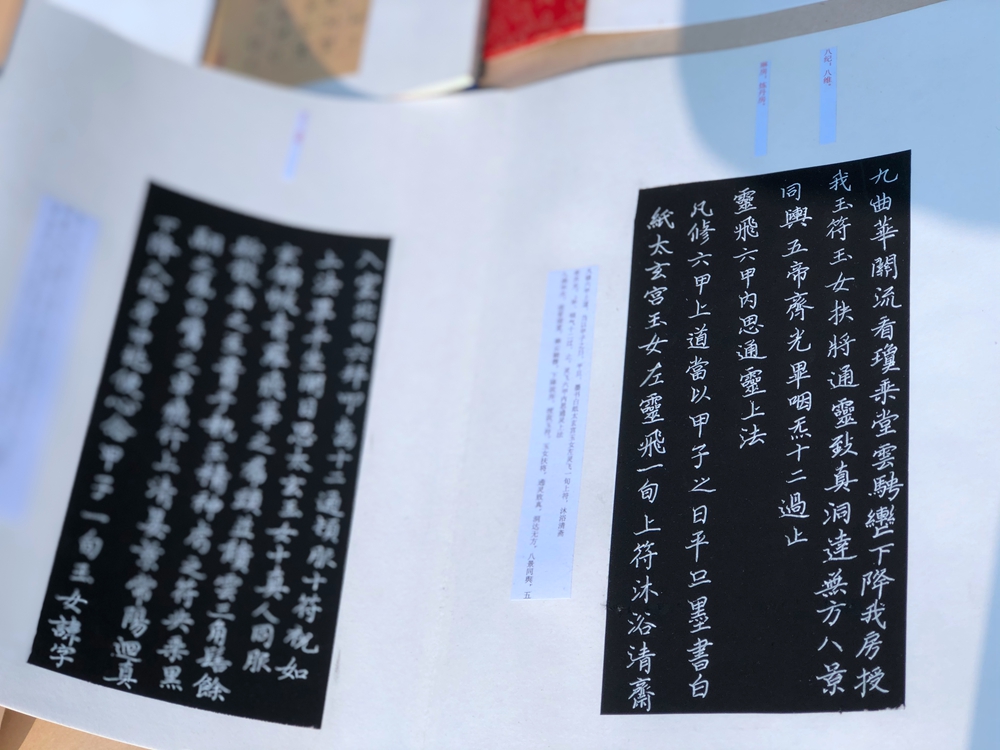 九曲華關流看瓊乘堂雲騁轡下降我房授
我玉符玉女扶將通靈致真洞達無方八景
同輿五帝齊光畢咽炁十二過止
靈飛六甲內思通靈上法
凡修六甲上道當以甲子之日平旦墨書白
紙太玄宮玉女左靈飛一旬上符沐浴清齋
入室北向六拜叩齒十二通頓服十符祝如
上法畢平坐閉目思太玄玉女十真人同服
玄錦帔青羅飛華之帬頭並頹雲三角髻餘
髮散垂之至要手執玉精神虎之符共乘黑
翮之鳳白鸞之車飛行上清晨景常陽迴真
下降入兆身中兆便心念甲子一旬玉女諱字